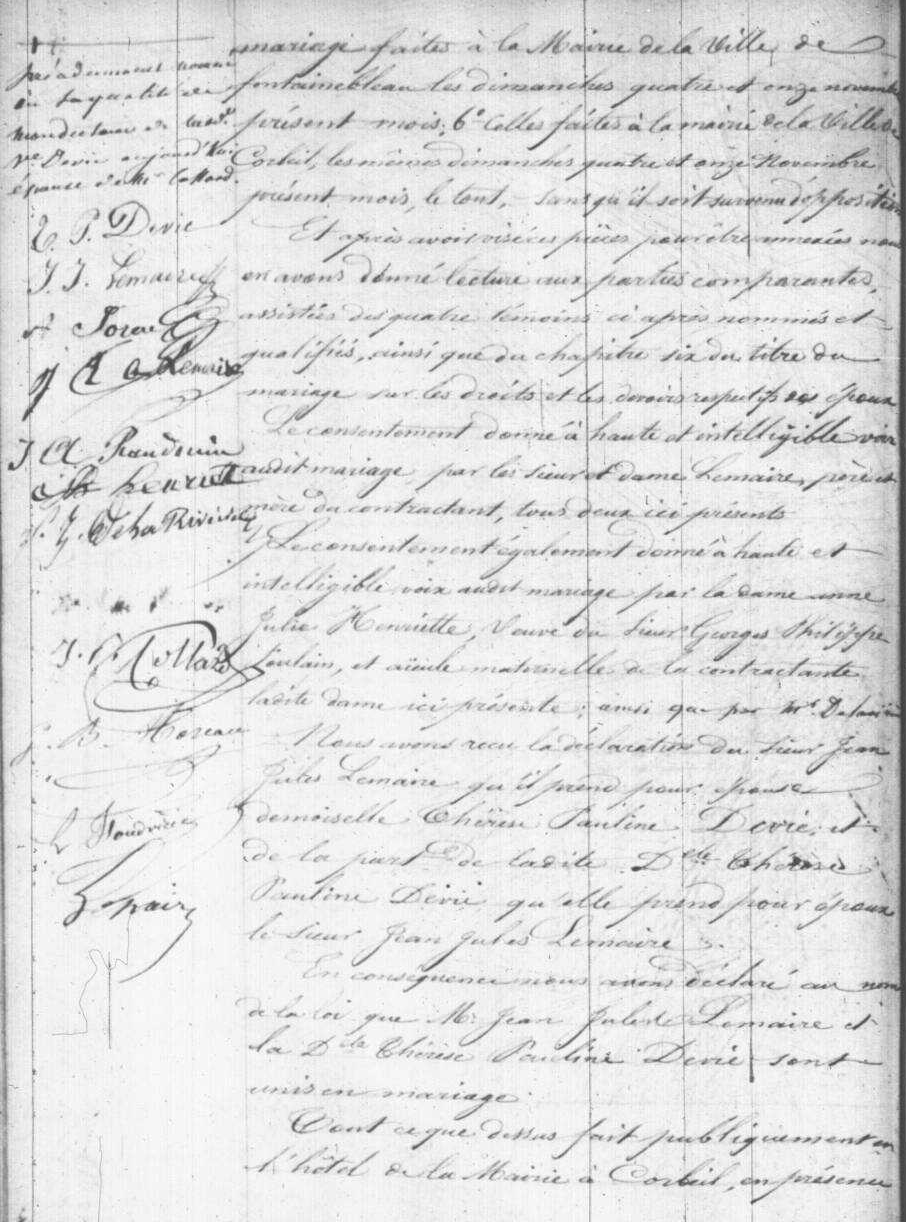 préadement nommé
en sa qualité de
mandataire de lad.e
Ve Devie aujourd'hui
épouse de Mr Collard.
T. P. Devie
J. J. Lemaire
J A
Henriette
J. Collard
J. B. Moreau
L
mariage faites à la Mairie de la Ville de
fontainebleau les dimanches quatre et onze novembre
présent mois; 6° Celles faites à la mairie de la Ville de
Corbeil, les mêmes dimanches quatre et onze Novembre
présent mois, le tout, sans qu'il soit survenu d'opposition
Et après avoir visé ces pièces pour être annexées nous
en avons donné lecture aux parties comparantes,
assistées des quatre témoins ci après nommés et
qualifiés, ainsi que du chapitre six du titre du
mariage sur les droits et les devoirs respectifs des époux
Le consentement donné à haute et intelligible voix
audit mariage, par les sieur et dame Lemaire, père et
mère du contractant, tous deux ici présents
Le consentement également donné à haute et
intelligible voix audit mariage par la dame anne
Julie Henriette, Veuve du Sieur Georges Philippe
Poulain, et aïeule maternelle de la contractante
ladite dame ici présente; ainsi que par Mr.
Nous avons reçu la déclaration du Sieur Jean
Jules Lemaire qu'il prend pour épouse
demoiselle Thérèse Pauline Devie; et
de la part de ladite Delle Thérèse
Pauline Devie qu'elle prend pour époux
le Sieur Jean Jules Lemaire
En conséquence nous avons déclaré au nom
de la loi que Mr Jean Jules Lemaire et
la Dlle Thérèse Pauline Devie sont
unis en mariage
Dont ce que dessus fait publiquement en
l'hôtel de la Mairie à Corbeil, en présence